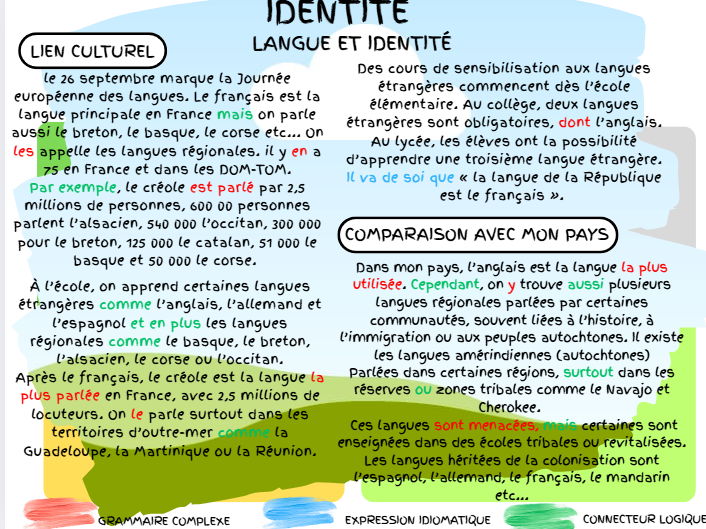 IDENTITÉ
LANGUE ET IDENTITÉ
LIEN CULTUREL
le 26 septembre marque la Journée
européenne des langues. Le français est la
langue principale en France mais on parle
aussi le breton, le basque, le corse etc... On
les appelle les langues régionales. il y en a
75 en France et dans les DOM-TOM.
Par exemple, le créole est parlé par 2,5
millions de personnes, 600 00 personnes
parlent l'alsacien, 540 000 l'occitan, 300 000
pour le breton, 125 000 le catalan, 51 000 le
basque et 50 000 le corse.
À l'école, on apprend certaines langues
étrangères comme l'anglais, l'allemand et
l'espagnol et en plus les langues
régionales comme le basque, le breton,
l'alsacien, le corse ou l'occitan.
Après le français, le créole est la langue la
plus parlée en France, avec 2,5 millions de
locuteurs. On le parle surtout dans les
territoires d'outre-mer comme la
Guadeloupe, la Martinique ou la Réunion.
Des cours de sensibilisation aux langues
étrangères commencent dès l'école
élémentaire. Au collège, deux langues
étrangères sont obligatoires, dont l'anglais.
Au lycée, les élèves ont la possibilité
d'apprendre une troisième langue étrangère.
Il va de soi que « la langue de la République
est le français ».
COMPARAISON AVEC MON PAYS
Dans mon pays, l'anglais est la langue la plus
utilisée. Cependant, on y trouve aussi plusieurs
langues régionales parlées par certaines
communautés, souvent liées à l'histoire, à
l'immigration ou aux peuples autochtones. Il existe
les langues amérindiennes (autochtones)
Parlées dans certaines régions, surtout dans les
réserves ou zones tribales comme le Navajo et
Cherokee.
Ces langues sont menacées, mais certaines sont
enseignées dans des écoles tribales ou revitalisées.
Les langues héritées de la colonisation sont
l'espagnol, l'allemand, le français, le mandarin
etc...
GRAMMAIRE COMPLEXE
EXPRESSION IDIOMATIQUE
CONNECTEUR LOGIQUE